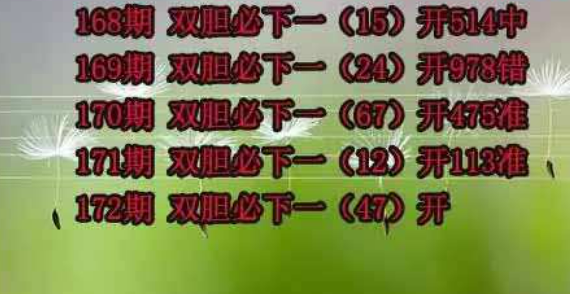 168期 双胆必下一（15）开514中
169期 双胆必下一（24）开978错
170期 双胆必下一（67）开475准
171期 双胆必下一（12）开113准
172期 双胆必下一（47）开